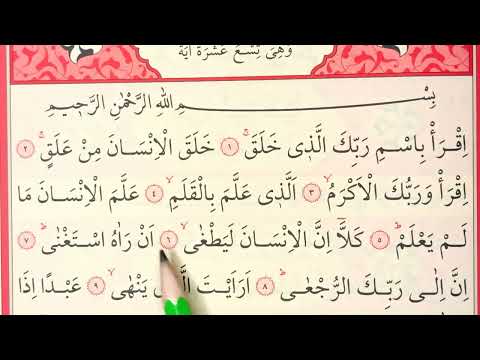 وَهِىَ تِسْعَ عَشْرَةَ اٰيَةً
بِسْمِ اللهِ الرَّحْمٰنِ الرَّح۪يمِ
اِقْرَأْ بِاسْمِ رَبِّكَ الَّذ۪ى خَلَقَۚ ﴿١﴾ خَلَقَ الْاِنْسَانَ مِنْ عَلَقٍۚ ﴿٢﴾
اِقْرَأْ وَرَبُّكَ الْاَكْرَمُۙ ﴿٣﴾ اَلَّذ۪ى عَلَّمَ بِالْقَلَمِۙ ﴿٤﴾ عَلَّمَ الْاِنْسَانَ مَا
لَمْ يَعْلَمْۜ ﴿٥﴾ كَلَّٓا اِنَّ الْاِنْسَانَ لَيَطْغٰىۙ ﴿٦﴾ اَنْ رَاٰهُ اسْتَغْنٰىۜ ﴿٧﴾
اِنَّ اِلٰى رَبِّكَ الرُّجْعٰىۜ ﴿٨﴾ اَرَاَيْتَ يَنْهٰىۙ ﴿٩﴾ عَبْدًا اِذَا